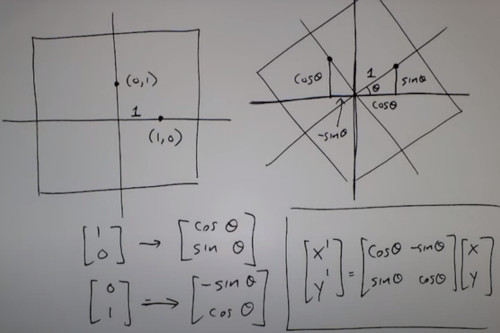 (0,1)
1
(1,0)
cosθ
1
θ
sinθ
cosθ
-sinθ
[1 0] → [cos θ sin θ]
[0 1] → [-sin θ cos θ]
[x' y'] = [cosθ -sinθ sinθ cosθ] [x y]